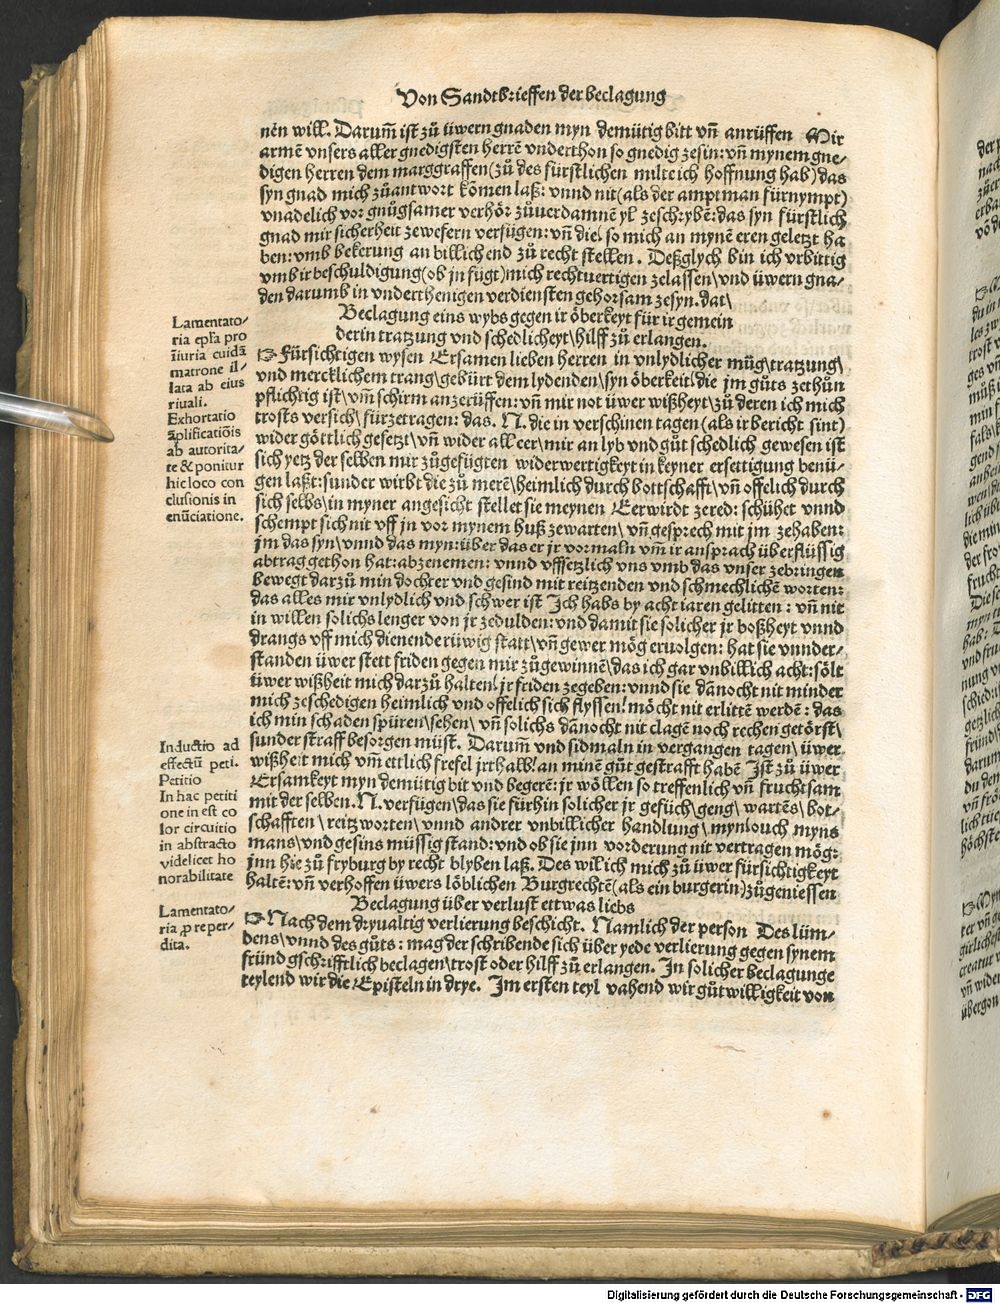 Von Sandtbrieffen der beclagung
nẽn will. Darum̃ ist zů üwern gnaden myn demütig bitt vñ anrüffen Mir
armẽ vnsers aller gnedigsten herrẽ vnderthon so gnedig zesin: vñ mynem gne⸗
digen herren dem marggraffen (zů des fürstlichen milte ich hoffnung hab) das
syn gnad mich zůantwort kõmen laß: vnnd nit (als der amptman fürnympt)
vnadelich vor gnůgsamer verhör zůuerdamnẽ yl zeschrybẽ: das syn fürstlich
gnad mir sicherheit zewefern verfügen: vñ die so mich an mynẽ eren geletzt ha
ben: vmb bekerung an billich end zů recht stellen. Deßglych bin ich vrbittig
vmb ir beschuldigung (ob jn fůgt) mich rechtuertigen zelassen\ vnd üwern gna⸗
den darumb in vnderthenigen verdiensten gehorsam zesyn. dat\
Beclagung eins wybs gegen ir öberkeyt für ir gemein
derin tratzung vnd schedlicheyt\ hilff zů erlangen.
Fürsichtigen wysen Ersamen lieben herren in vnlydlicher müg\ tratzung\
vnd mercklichem trang\ gebürt dem lydenden\ syn öberkeit\ die jm gůts zethůn
pflichtig ist\ vm̃ schirm anzerüffen: vñ mir not üwer wißheyt\ zů deren ich mich
trosts versich\ fürzetragen: das. N. die in verschinen tagen (als ir bericht sint)
wider göttlich gesetzt\ vñ wider all eer\ mir an lyb vnd gůt schedlich gewesen ist
sich yetz der selben mir zůgefügten widerwertigkeyt in keyner ersettigung benü⸗
gen laßt: sunder wirbt die zů merẽ\ heimlich durch bottschafft\ vñ offelich durch
sich selbs\ in myner angesicht stellet sie meynen Eerwirdt zered: schühet vnnd
schempt sich nit vff jn vor mynem huß zewarten\ vñ gesprech mit jm zehaben:
jm das syn\ vnnd das myn: über das er jr vormaln vm̃ ir ansprach überflüssig
abtrag gethon hat: abzenemen: vnnd vffsetzlich vns vmb das vnser zebringen
bewegt darzů min dochter vnd gesind mit reitzenden vnd schmechlichẽ worten:
das alles mir vnlydlich vnd schwer ist Ich habs by acht iaren gelitten: vñ nit
in willen solichs lenger von jr zedulden: vnd damit sie solicher jr boßheyt vnnd
drangs vff mich dienende rüwig statt\ vñ gewer mög eruolgen: hat sie vnnder⸗
standen üwer stett friden gegen mir zůgewinnẽ\ das ich gar vnbillich acht: sölt
üwer wißheit mich darzů halten\ jr friden zegeben: vnnd sie dãnocht nit minder
mich zeschedigen heimlich vnd offelich sich flyssen\ möcht nit erlittẽ werdẽ: das
ich min schaden spüren\ sehen\ vñ solichs dãnocht nit clagẽ noch rechen getörst\
sunder straff besorgen müst. Darum̃ vnd sidmaln in vergangen tagen\ üwer
wißheit mich vm̃ ettlich frefel jrthalb\ an minẽ gůt gestrafft habẽ Ist zů üwer
Ersamkeyt myn demütig bit vnd begerẽ: jr wöllen so treffenlich vñ fruchtsam
mit der selben. N. verfügen\ das sie fürhin solicher jr gesůch\ geng\ wartẽs\ bot⸗
schafften\ reitzworten\ vnnd andrer vnbillicher handlung\ myn\ ouch myns
mans\ vnd gesins müssig stand: vnd ob sie jnn vorderung nit vertragen mög:
jnn hie zů fryburg by recht blyben laß. Des wil ich mich zů üwer fürsichtigkeyt
haltẽ: vñ verhoffen üwers löblichen Burgrechtẽ (als ein burgerin) zůgeniessen
Beclagung über verlust ettwas liebs
Nach dem dryualtig verlierung beschicht. Namlich der person Des lüm⸗
dens\ vnnd des gůts: mag der schribende sich über yede verlierung gegen synem
fründ gschrifftlich beclagen\ trost oder hilff zů erlangen. In solicher beclagunge
teylend wir die Episteln in drye. Im ersten teyl vahend wir gůtwilligkeit von
Lamentato⸗
ria ep̃la pro
iniuria cuidã
matrone il⸗
lata ab eius
riuali.
Exhortatio
ãplificatiõis
ab autorita⸗
te & ponitur
hic loco con
clusionis in
enũciatione.
Inductio ad
effectũ peti.
Petitio
In hac petiti
one in est co
lor circuitio
in abstracto
videlicet ho
norabilitate
Lamentato⸗
ria ꝓ re per⸗
dita.
Digitalisierung gefördert durch die Deutsche Forschungsgemeinschaft - DFG